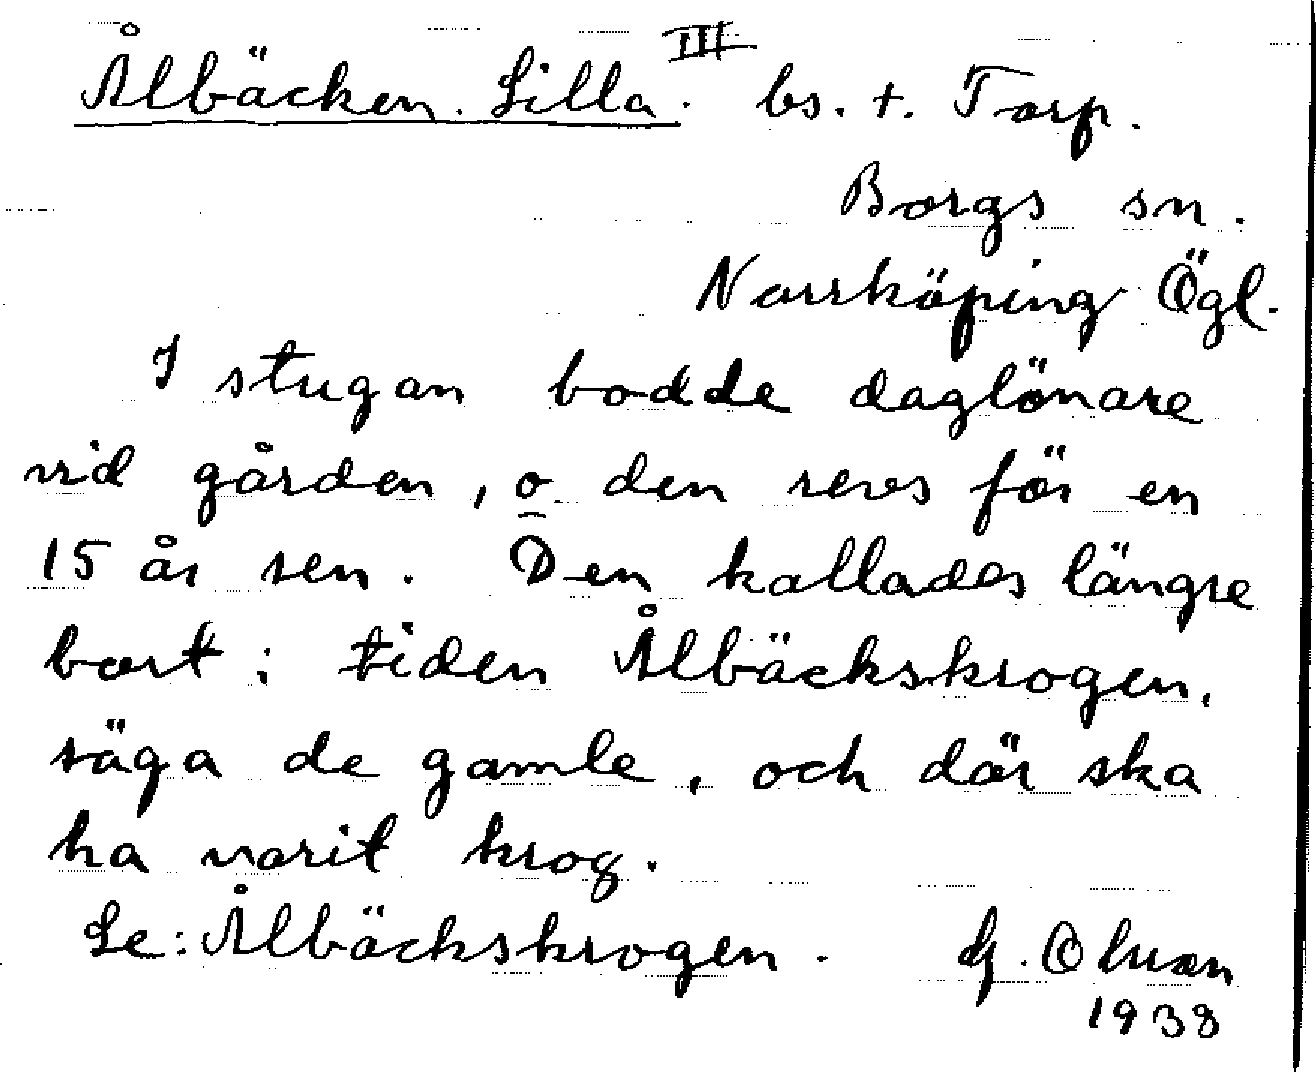 Ålbäcken. Lilla. III bs. t. Torp.
Borgs sn.
Norrköping Ögl.
I stugan bodde daglönare
vid gården, o den revs för en
15 år sen. Den kallades längre
bort i tiden Ålbäckskrogen,
säga de gamle, och där ska
ha varit krog.
Se: Ålbäckskrogen. G. Olson
1938